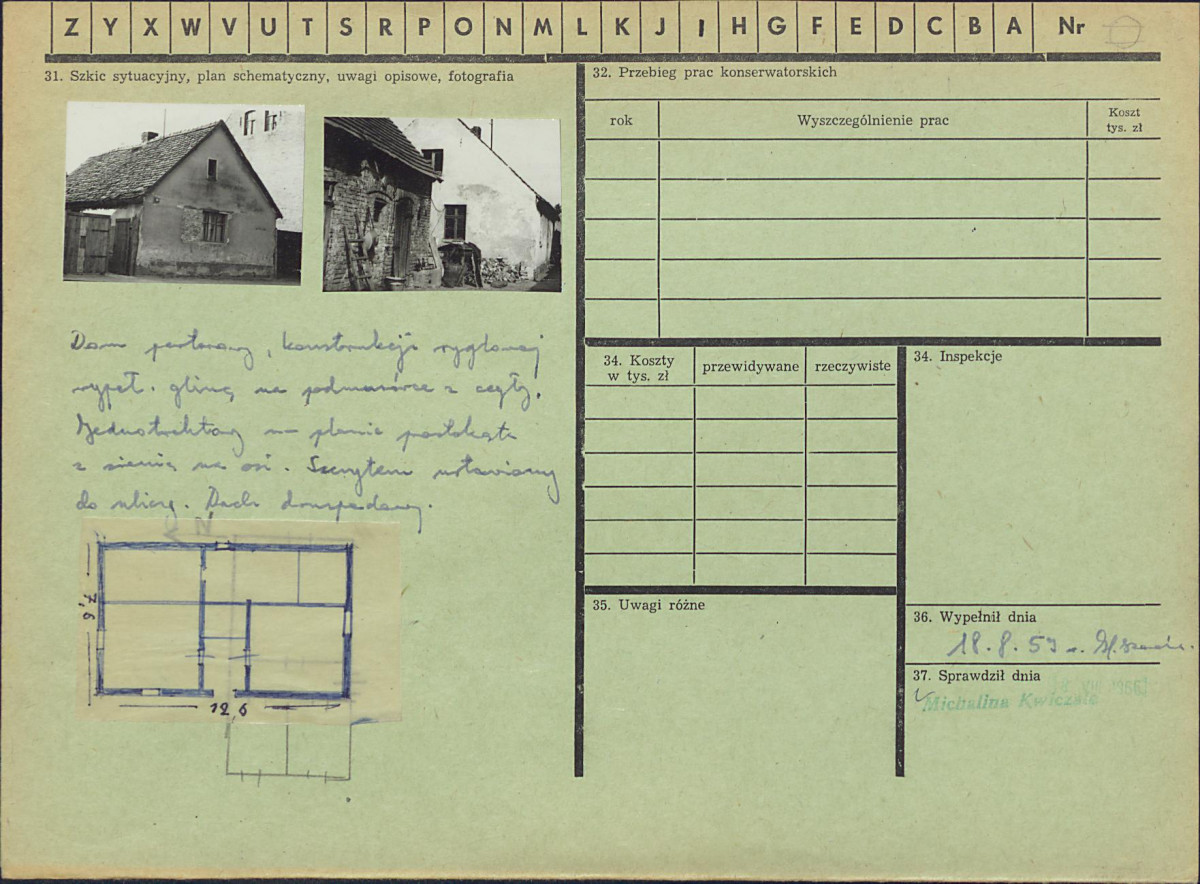 Z Y X W V U T S R P O N M L K J I H G F E D C B A Nr
31. Szkic sytuacyjny, plan schematyczny, uwagi opisowe, fotografia
Dom parterowy, konstrukcji ryglowej
wypeł. gliną na podmurówce z cegły.
Jednotraktowy na planie prostokąta
z sienią na osi. Szczytem ustawiony
do ulicy. Dach dwuspadowy.
N
7,6
12,6
32. Przebieg prac konserwatorskich
rok
Wyszczególnienie prac
Koszt
tys. zł
34. Koszty
w tys. zł
przewidywane
rzeczywiste
34. Inspekcje
35. Uwagi różne
36. Wypełnił dnia
18. 8. 59 r.
37. Sprawdził dnia
Michalina Kwiczala